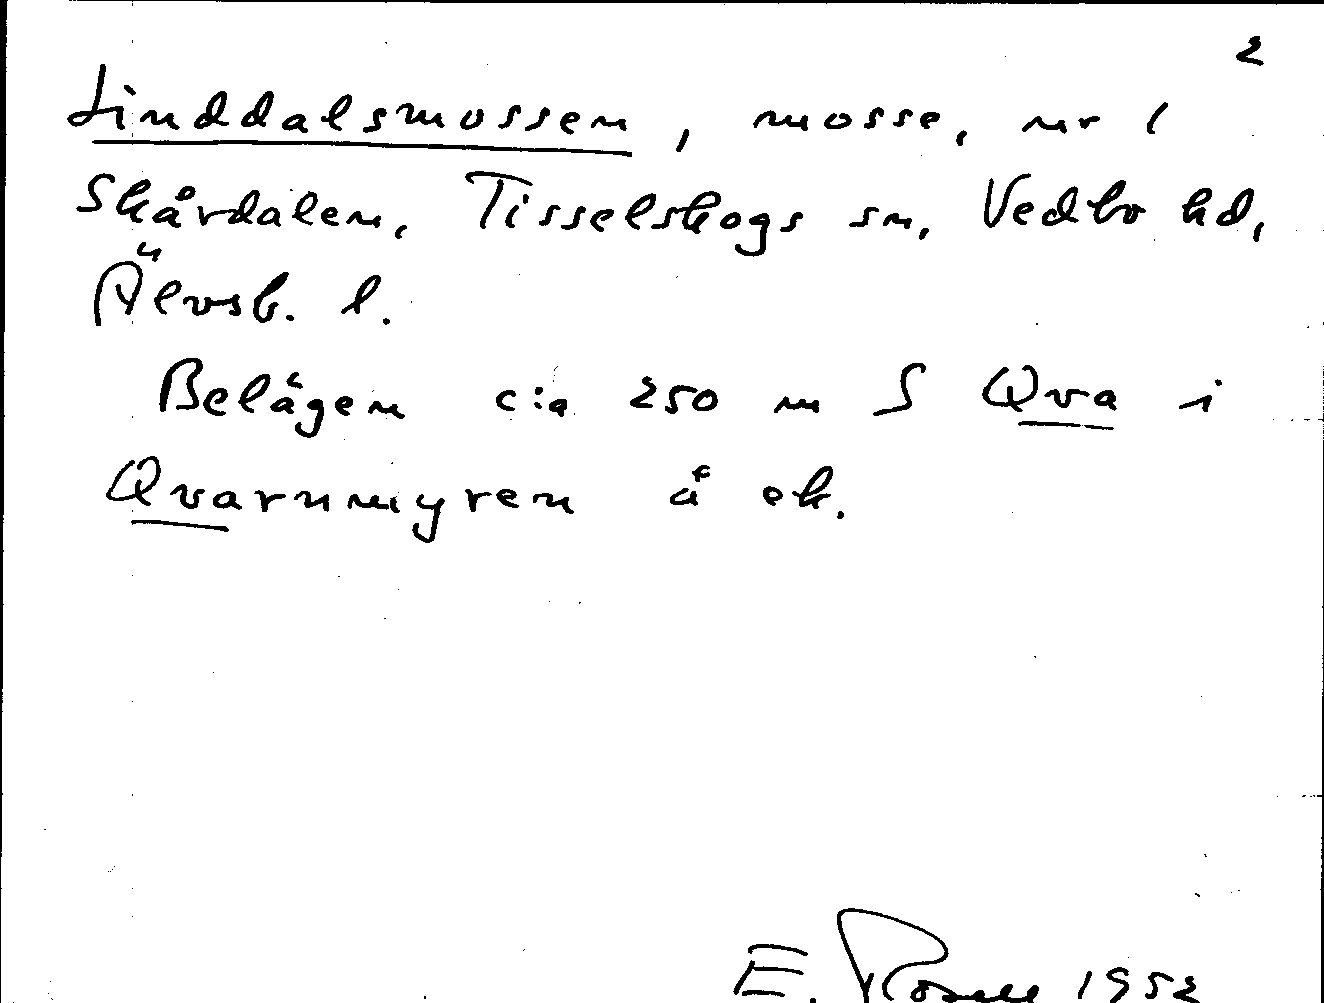 2
Linddalsmossen, mosse, nr 1
Skårdalen, Tisselskogs sn, Vedbo hd,
Älvsb. l.
Belägen c:a 250 m S Qva i
Qvarnmyren å ek.
E. Rosell 1952